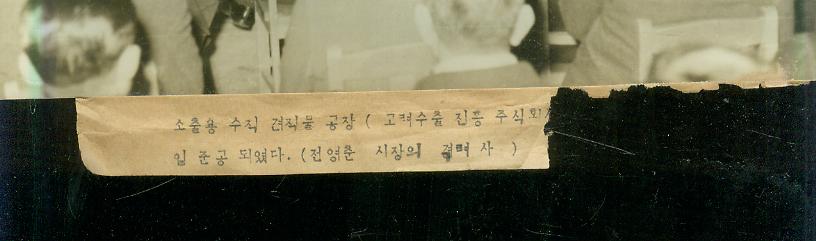 소출용 수직 견직물 공장 ( 고려수출 진흥 주식회
입 준공 되였다. (전영춘 시장의 격려사 )